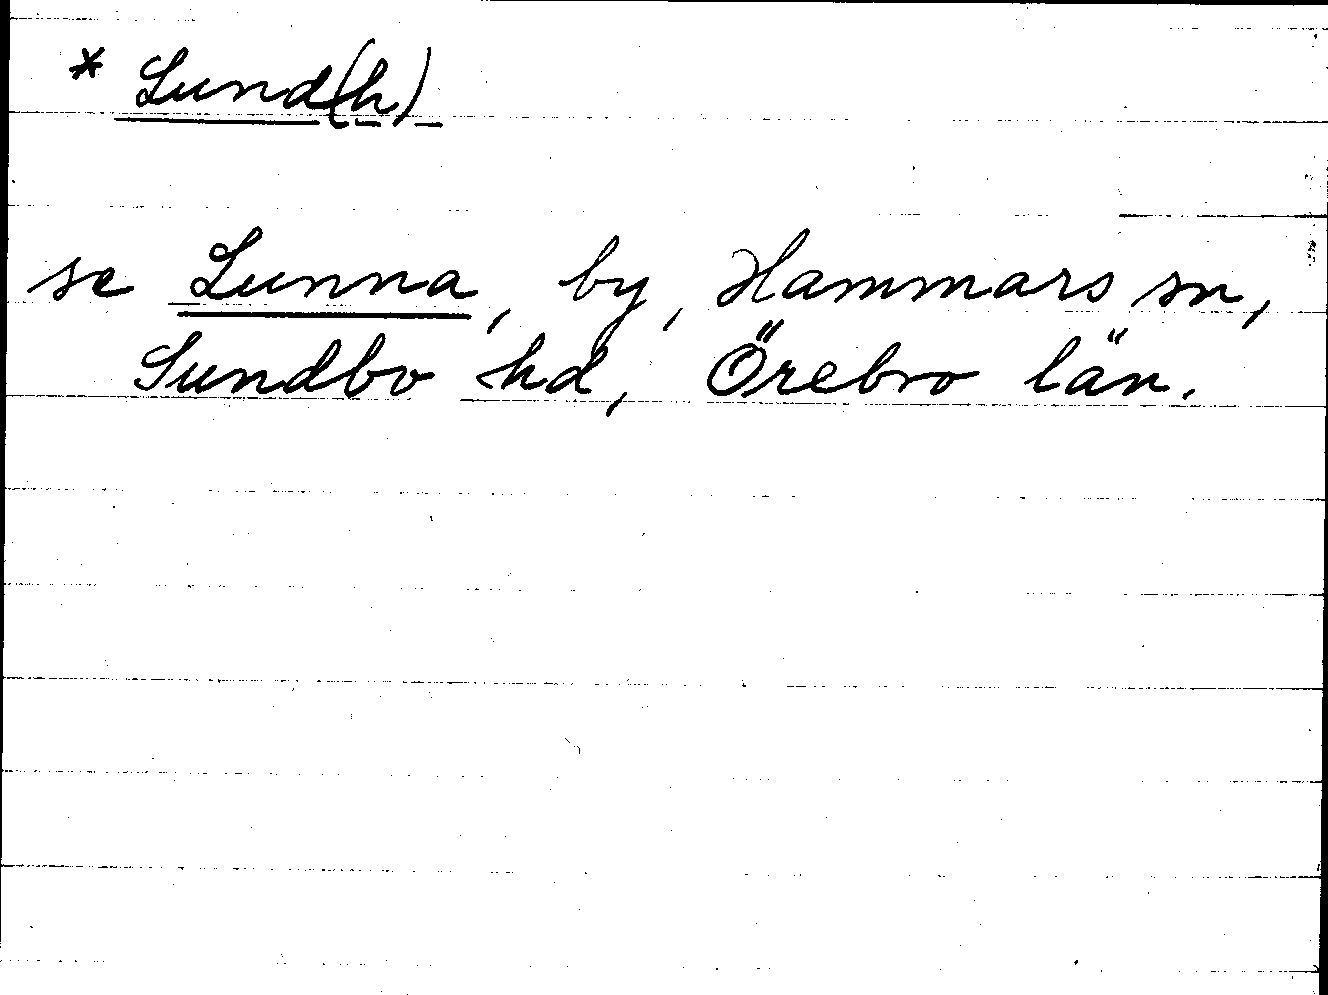 * Lund(h)
se Lunna, by, Hammars sn,
Sundbo hd, Örebro län.